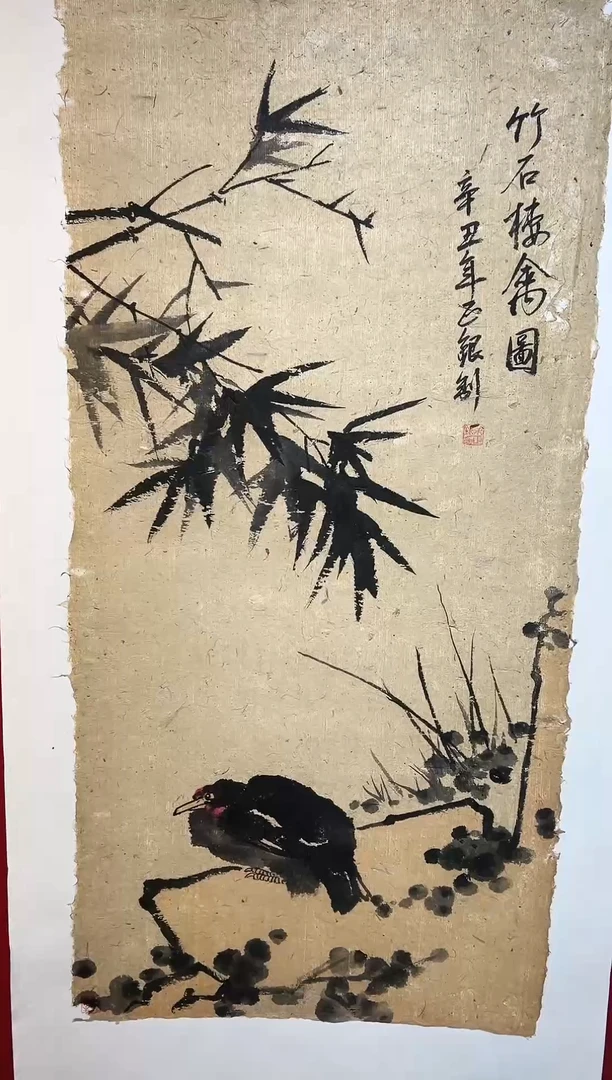 竹石棲禽圖
辛丑年正銀制